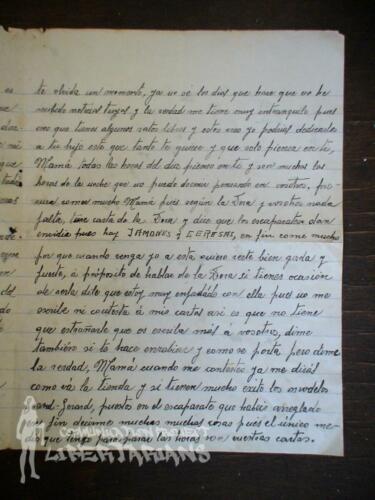 te olvida un momento, ya ve los dias que hace que no he
recibido noticias tuyas y la verdad me tiene muy intranquilo pues
creo que tienes algunos ratos libres y estos creo yo podias dedicarselo
a tu hijo este que tanto te quiere y que solo piensa en tí,
Mamá todas las horas del dia pienso en tí y son muchas las
horas de la noche que no puedo dormir pensando en vosotros, pro-
cura comer mucho Mamá pues según la Dora y vosotros nada
falta, tuve carta de la Dora y dice que los escaparates dan
envidia pues hay JAMONES y CERESAS, en fin come mucho
por que cuando venga yo a esta quiero verte bien gorda y
fuerte, á propósito de hablar de la Dora si tienes ocasión
de verla dile que estoy muy enfadado con ella pues no me
escribe ni contesta á mis cartas asi es que no tiene
que extrañarle que os escriba más á vosotros, dime
tambien si te hace enrabiar y como se porta pero dime
la verdad, Mamá cuando me contestes ya me dirás
como vá la tienda y si tienen mucho exito los modelos
puestos en el escaparate que habia arreglado
en fin decirme muchas muchas cosas pues el único me-
dio que tengo para pasar las horas son vuestras cartas.
COMUNICACION PROJECT
LIBERTARIANS